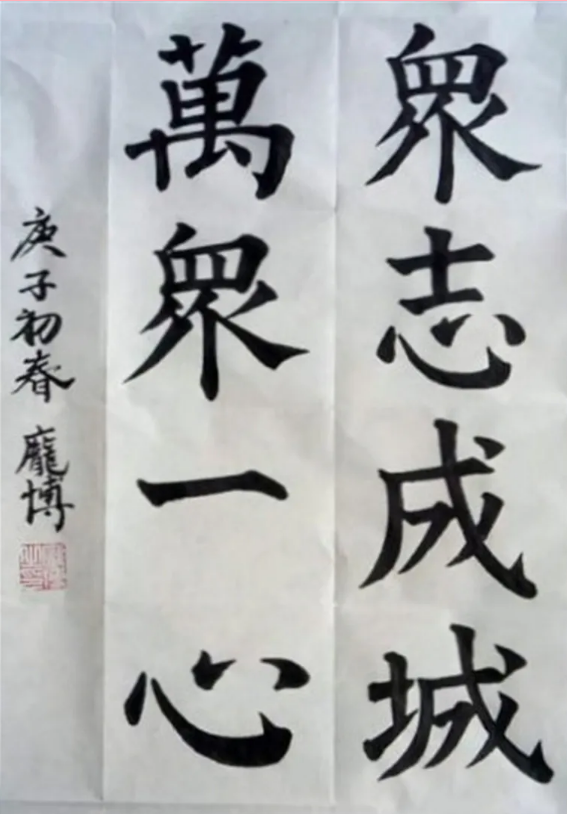 眾志成城
萬眾一心
庚子初春 龐博